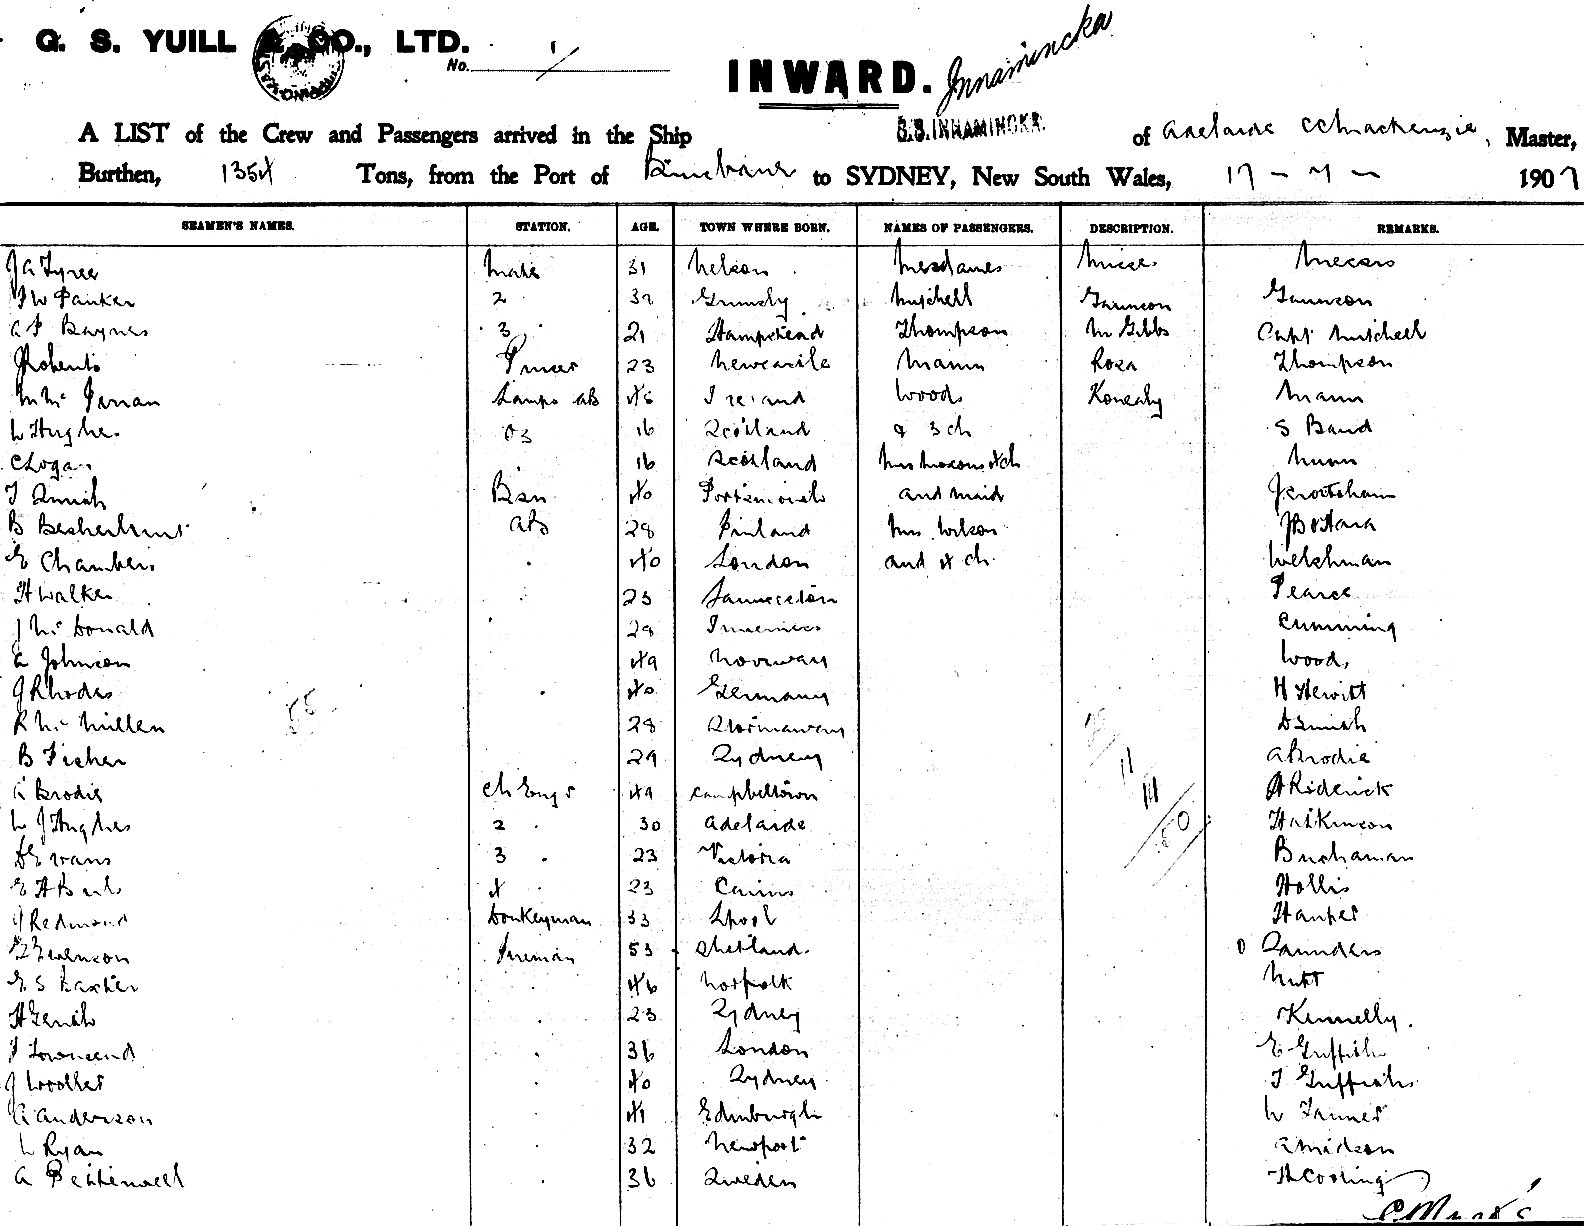 G. S. YUILL & CO., LTD.
No. 1/
INWARD. Innamincka
A LIST of the Crew and Passengers arrived in the Ship S.S. INNAMINCKA. of Adelaide C Mackenzie, Master,
Burthen, 1354 Tons, from the Port of Brisbane to SYDNEY, New South Wales, 17 - 7 - 1907
SEAMEN'S NAMES. STATION. AGE. TOWN WHERE BORN. NAMES OF PASSENGERS. DESCRIPTION. REMARKS.
J A Tyree Mate 31 Nelson Mesdames Misses Messrs
2 Grimsby Mitchell Gaunson Gaunson
A P Baynes 3 21 Hampstead Thompson McGibbs Capt Mitchell
J Roberts Purser 23 Newcastle Mann Rosa Thompson
M Mc Farran Lamps AB 46 Ireland Woods Kenealy Mann
W Hughes OS 16 Scotland & 3 ch S Band
C Logan 16 Scotland Mrs 4 ch
T Smith Bsn 40 Portsmouth and maid
B AB 28 Finland Mrs Wilson J B O'Hara
E Chambers 40 London and 4 ch Welshman
H Walker 23 Launceston Pearce
J McDonald Inverness Cumming
A Johnson 49 Norway Woods
J Rhodes 40 Germany H Hewitt
R McMillen 28 Stornaway D Smith
B Fisher 29 Sydney A Brodie
A Brodie Ch Engr 49 Campbeltown A Roderick
W J Hughes 2 30 Adelaide Hatkinson
D Evans 3 23 Victoria Buchanan
4 23 Cairns Hollis
J Redmond Donkeyman 33 Lpool Harper
Fireman 53 Shetland Saunders
E S 46 Norfolk Nutt
23 Sydney Kennelly.
J Townsend 36 London E Griffiths
J 40 Sydney T Griffiths
A Anderson 41 Edinburgh W Tanner
W Ryan 32 Newport
A 36 Sweden H Cooling